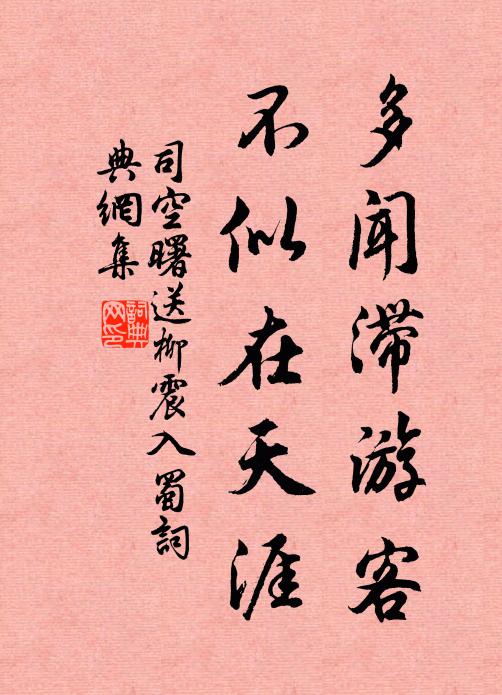 多闻滞游客
不似在天涯
司空曙送柳震入蜀詞
典網集
詞典网印